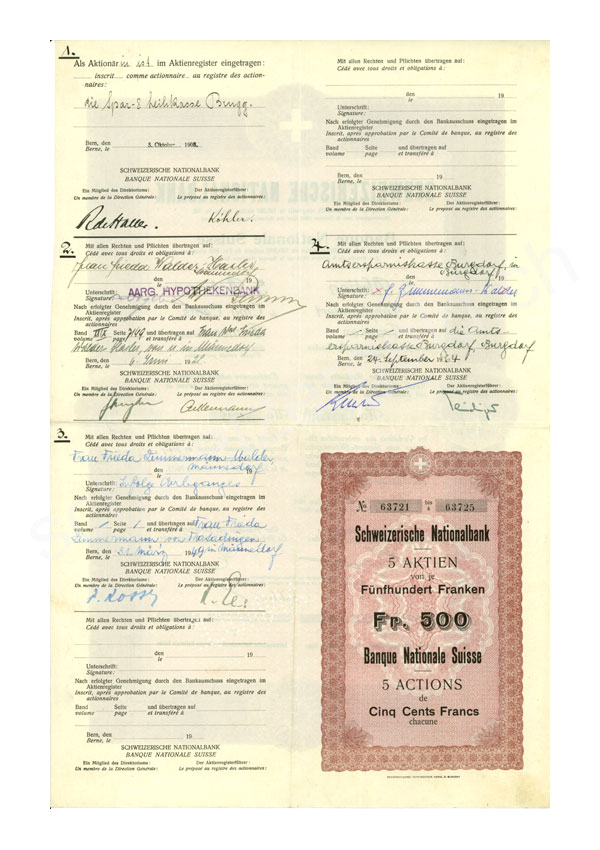 1.
Als Aktionärin ist im Aktienregister eingetragen:
inscrit comme actionnaire au registre des actionnaires:
die Spar- & Leihkasse Brugg.
Bern, den
Berne, le
5. Oktober 1908.
SCHWEIZERISCHE NATIONALBANK
BANQUE NATIONALE SUISSE
Ein Mitglied des Direktoriums: Der Aktienregisterführer:
Un membre de la Direction Générale: Le préposé au registre des actionnaires:
Köhler.
2.
Mit allen Rechten und Pflichten übertragen auf:
Cédé avec tous droits et obligations à:
Frau Frieda Walder-
den
le
19
Unterschrift:
Signature:
AARG. HYPOTHEKENBANK
Nach erfolgter Genehmigung durch den Bankausschuss eingetragen im Aktienregister
Inscrit, après approbation par le Comité de banque, au registre des actionnaires
Band Seite 744 und übertragen auf Frau Wwe Frieda
volume page et transféré à
Walder- von u. in Männedorf
Bern, den
Berne, le
6. Juni 19
SCHWEIZERISCHE NATIONALBANK
BANQUE NATIONALE SUISSE
Ein Mitglied des Direktoriums: Der Aktienregisterführer:
Un membre de la Direction Générale: Le préposé au registre des actionnaires:
3.
Mit allen Rechten und Pflichten übertragen auf:
Cédé avec tous droits et obligations à:
Frau Frieda Zimmermann-Walder,
Männedorf
den
le
19
Unterschrift:
Signature:
infolge Erbganges
Nach erfolgter Genehmigung durch den Bankausschuss eingetragen im Aktienregister
Inscrit, après approbation par le Comité de banque, au registre des actionnaires
Band / Seite / und übertragen auf Frau Frieda
volume page et transféré à
Zimmermann, von in Männedorf
Bern, den
Berne, le
März 1949
SCHWEIZERISCHE NATIONALBANK
BANQUE NATIONALE SUISSE
Ein Mitglied des Direktoriums: Der Aktienregisterführer:
Un membre de la Direction Générale: Le préposé au registre des actionnaires:
Mit allen Rechten und Pflichten übertragen auf:
Cédé avec tous droits et obligations à:
den
le
19
Unterschrift:
Signature:
Nach erfolgter Genehmigung durch den Bankausschuss eingetragen im Aktienregister
Inscrit, après approbation par le Comité de banque, au registre des actionnaires
Band Seite und übertragen auf
volume page et transféré à
Bern, den
Berne, le
19
SCHWEIZERISCHE NATIONALBANK
BANQUE NATIONALE SUISSE
Ein Mitglied des Direktoriums: Der Aktienregisterführer:
Un membre de la Direction Générale: Le préposé au registre des actionnaires:
Mit allen Rechten und Pflichten übertragen auf:
Cédé avec tous droits et obligations à:
den
le
19
Unterschrift:
Signature:
Nach erfolgter Genehmigung durch den Bankausschuss eingetragen im Aktienregister
Inscrit, après approbation par le Comité de banque, au registre des actionnaires
Band Seite und übertragen auf
volume page et transféré à
Bern, den
Berne, le
19
SCHWEIZERISCHE NATIONALBANK
BANQUE NATIONALE SUISSE
Ein Mitglied des Direktoriums: Der Aktienregisterführer:
Un membre de la Direction Générale: Le préposé au registre des actionnaires:
4.
Mit allen Rechten und Pflichten übertragen auf:
Cédé avec tous droits et obligations à:
Amtsersparniskasse Burgdorf, in
Burgdorf
den
le
19
Unterschrift:
Signature:
Zimmermann-Walder
Nach erfolgter Genehmigung durch den Bankausschuss eingetragen im Aktienregister
Inscrit, après approbation par le Comité de banque, au registre des actionnaires
Band - Seite - und übertragen auf die Amts-
volume page et transféré à
ersparniskasse Burgdorf, Burgdorf
Bern, den
Berne, le
24. September 1964
SCHWEIZERISCHE NATIONALBANK
BANQUE NATIONALE SUISSE
Ein Mitglied des Direktoriums: Der Aktienregisterführer:
Un membre de la Direction Générale: Le préposé au registre des actionnaires:
№ 63721 bis à 63725
Schweizerische Nationalbank
5 AKTIEN
von je
Fünfhundert Franken
Fr. 500
Banque Nationale Suisse
5 ACTIONS
de
Cinq Cents Francs
chacune